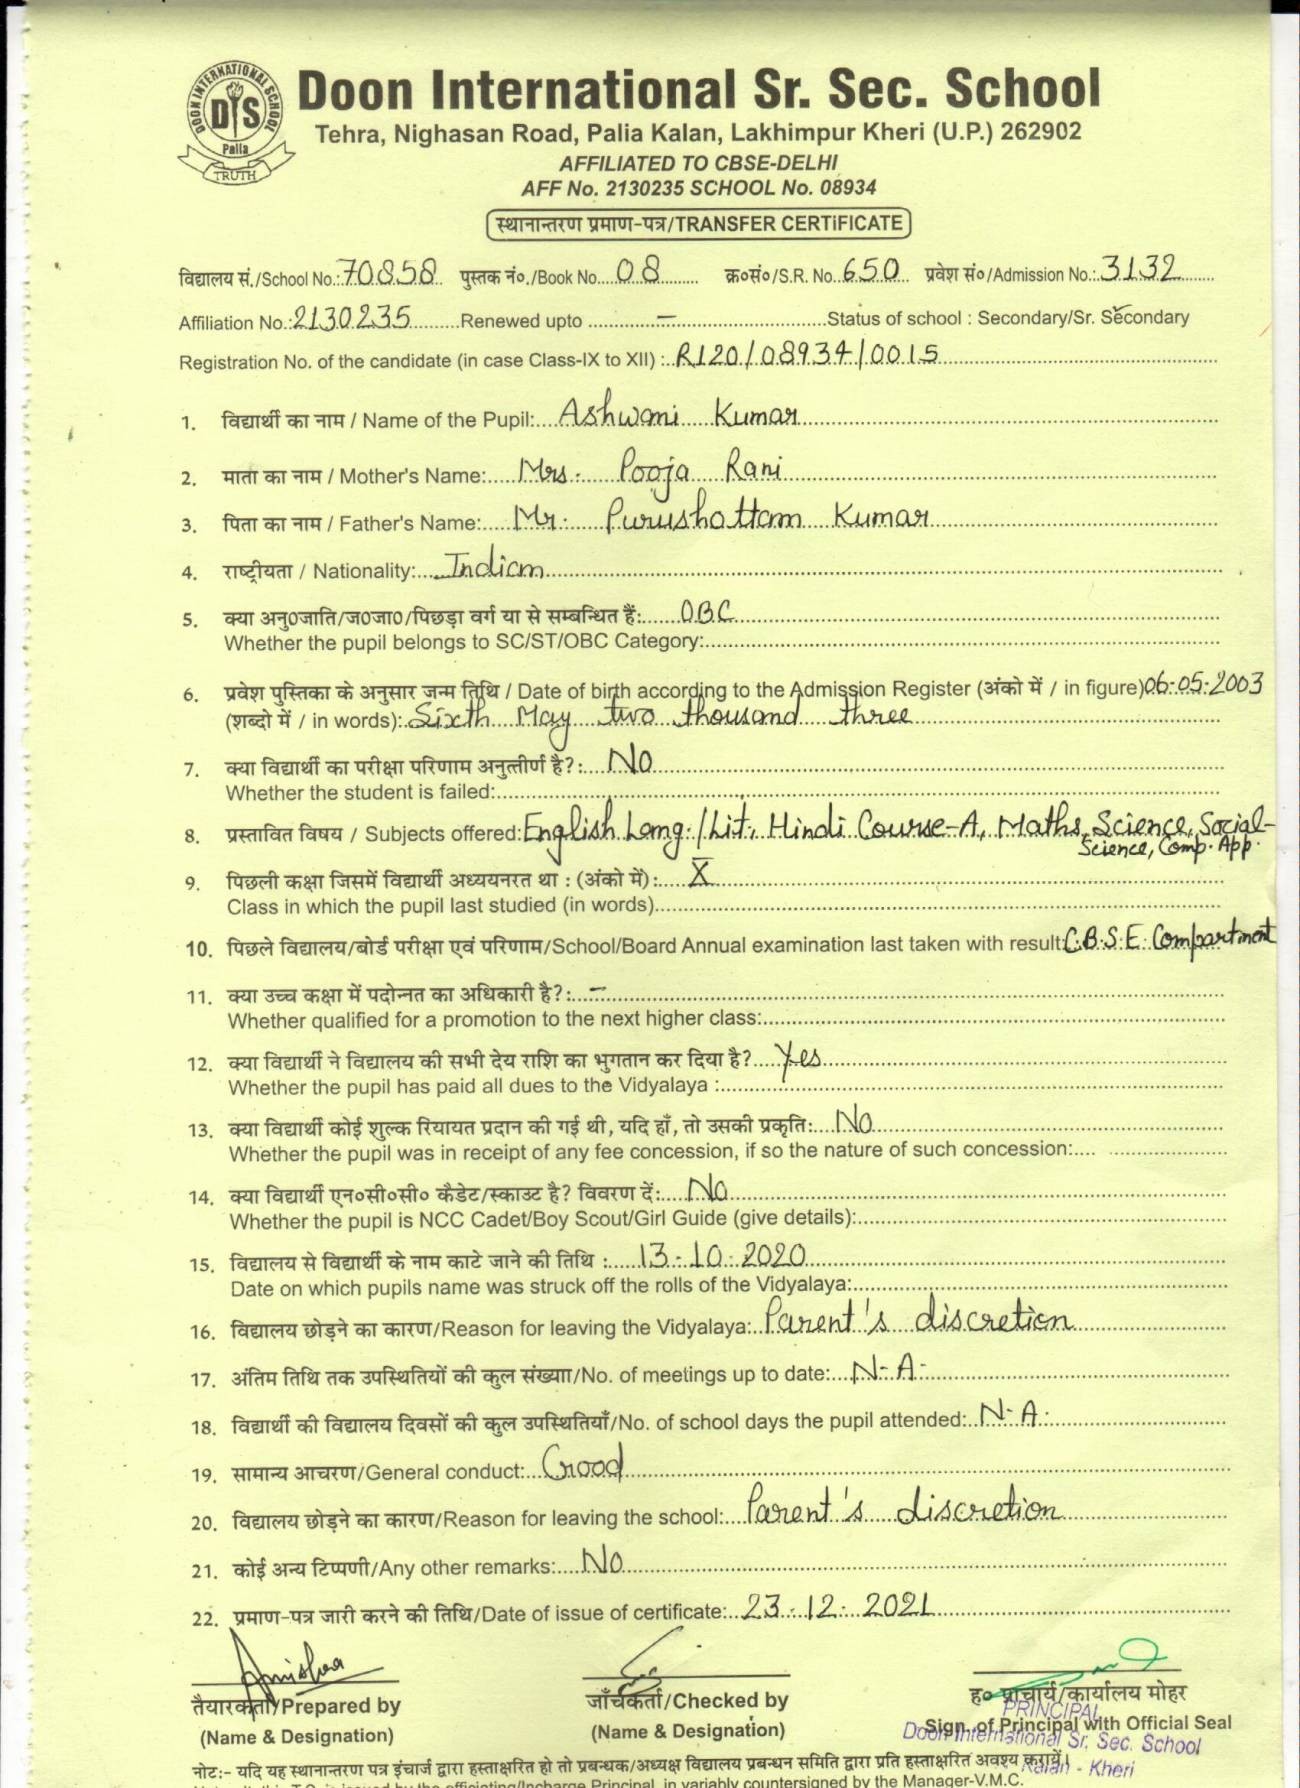 DOON INTERNATIONAL SCHOOL
DIS
Palia
TRUTH
Doon International Sr. Sec. School
Tehra, Nighasan Road, Palia Kalan, Lakhimpur Kheri (U.P.) 262902
AFFILIATED TO CBSE-DELHI
AFF No. 2130235 SCHOOL No. 08934
स्थानान्तरण प्रमाण-पत्र/TRANSFER CERTiFICATE
विद्यालय सं./School No.:70858 पुस्तक नं०./Book No....08.... क्र०सं०/S.R. No..650.. प्रवेश सं०/Admission No.:.3132
Affiliation No.:2130235..........Renewed upto ............–............Status of school : Secondary/Sr. Secondary
Registration No. of the candidate (in case Class-IX to XII) :..R120/08934/0015
1. विद्यार्थी का नाम / Name of the Pupil:....Ashwani Kumar
2. माता का नाम / Mother's Name:....Mrs. Pooja Rani
3. पिता का नाम / Father's Name:....Mr. Purushottam Kumar
4. राष्ट्रीयता / Nationality:....Indian
5. क्या अनु०जाति/ज०जा०/पिछड़ा वर्ग या से सम्बन्धित हैं:....OBC
Whether the pupil belongs to SC/ST/OBC Category:
6. प्रवेश पुस्तिका के अनुसार जन्म तिथि / Date of birth according to the Admission Register (अंको में / in figure)06-05-2003
(शब्दो में / in words):..Sixth May two thousand three
7. क्या विद्यार्थी का परीक्षा परिणाम अनुत्तीर्ण है?:....No
Whether the student is failed:
8. प्रस्तावित विषय / Subjects offered:English Lang./Lit., Hindi Course-A, Maths, Science, Social-
Science, Comp. App.
9. पिछली कक्षा जिसमें विद्यार्थी अध्ययनरत था : (अंको में):....X
Class in which the pupil last studied (in words)
10. पिछले विद्यालय/बोर्ड परीक्षा एवं परिणाम/School/Board Annual examination last taken with result:C.B.S.E. Compartment
11. क्या उच्च कक्षा में पदोन्नत का अधिकारी है?:....–
Whether qualified for a promotion to the next higher class:
12. क्या विद्यार्थी ने विद्यालय की सभी देय राशि का भुगतान कर दिया है?....Yes
Whether the pupil has paid all dues to the Vidyalaya :
13. क्या विद्यार्थी कोई शुल्क रियायत प्रदान की गई थी, यदि हाँ, तो उसकी प्रकृति:....No
Whether the pupil was in receipt of any fee concession, if so the nature of such concession:....
14. क्या विद्यार्थी एन०सी०सी० कैडेट/स्काउट है? विवरण दें:....No
Whether the pupil is NCC Cadet/Boy Scout/Girl Guide (give details):
15. विद्यालय से विद्यार्थी के नाम काटे जाने की तिथि :....13-10-2020
Date on which pupils name was struck off the rolls of the Vidyalaya:
16. विद्यालय छोड़ने का कारण/Reason for leaving the Vidyalaya:..Parent's discretion
17. अंतिम तिथि तक उपस्थितियों की कुल संख्याा/No. of meetings up to date:...N-A-
18. विद्यार्थी की विद्यालय दिवसों की कुल उपस्थितियाँ/No. of school days the pupil attended:..N-A-
19. सामान्य आचरण/General conduct:...Good
20. विद्यालय छोड़ने का कारण/Reason for leaving the school:...Parent's discretion
21. कोई अन्य टिप्पणी/Any other remarks:....No
22. प्रमाण-पत्र जारी करने की तिथि/Date of issue of certificate:..23-12-2021
तैयारकर्ता/Prepared by जाँचकर्ता/Checked by ह० प्राचार्य/कार्यालय मोहर
(Name & Designation) (Name & Designation) Sign. of Principal with Official Seal
PRINCIPAL
Doon International Sr. Sec. School
Kalan - Kheri
नोटः- यदि यह स्थानान्तरण पत्र इंचार्ज द्वारा हस्ताक्षरित हो तो प्रबन्धक/अध्यक्ष विद्यालय प्रबन्धन समिति द्वारा प्रति हस्ताक्षरित अवश्य करायें।
T.C. is issued by the officiating/Incharge Principal, in variably countersigned by the Manager-V.M.C.